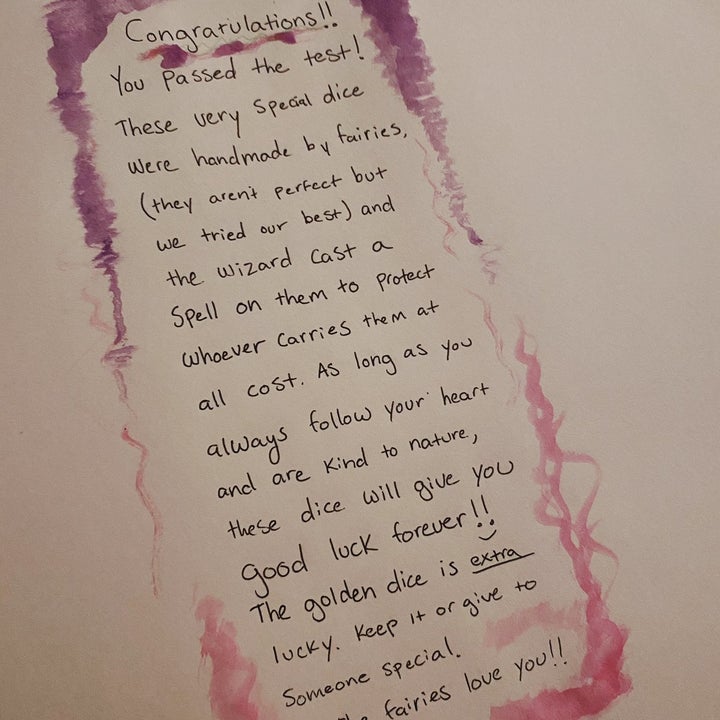 Congratulations!!
You passed the test!
These very special dice
were handmade by fairies,
(they aren't perfect but
we tried our best) and
the wizard cast a
spell on them to protect
whoever carries them at
all cost. As long as you
always follow your heart
and are kind to nature,
these dice will give you
good luck forever!!
The golden dice is extra
lucky. Keep it or give to
someone special.
fairies love you!!